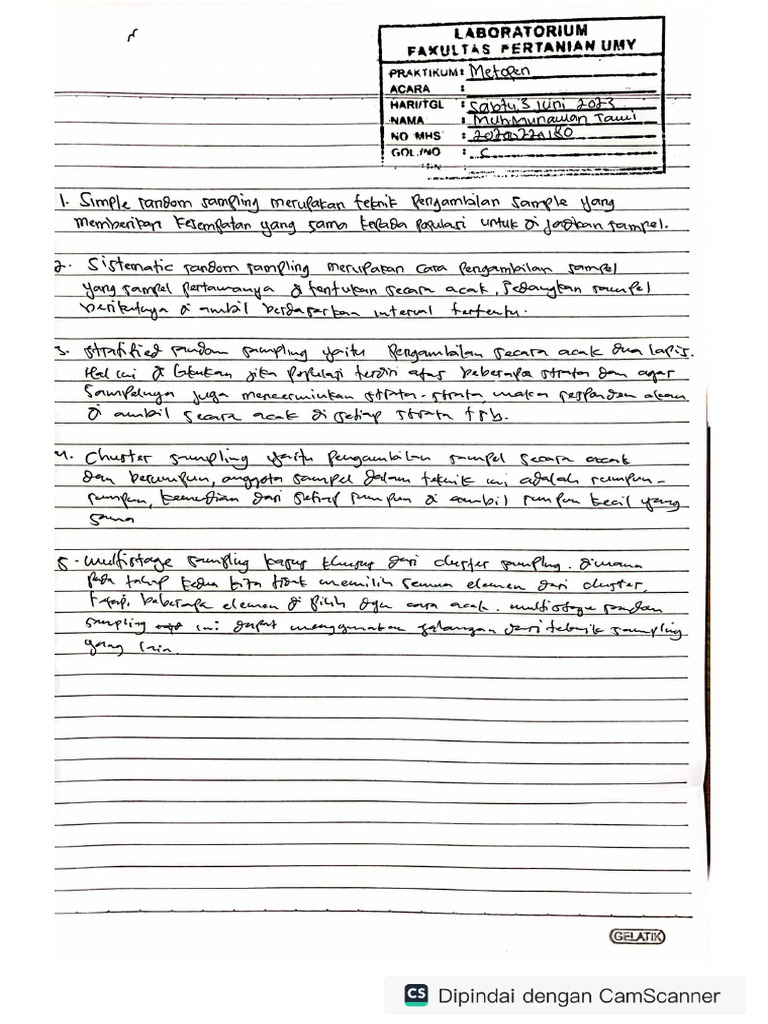 LABORATORIUM
FAKULTAS PERTANIAN UMY
PRAKTIKUM : Metopen
ACARA :
HARI/TGL : Sabtu, 3 Juni 2023
NAMA : Muh Munawan Tawi
NO MHS : 20200220180
GOL./NO : C
1. Simple random sampling merupakan teknik pengambilan sample yang
memberikan kesempatan yang sama kepada populasi untuk di jadikan sampel.
2. Sistematic random sampling merupakan cara pengambilan sampel
yang sampel pertamanya di tentukan secara acak, sedangkan sampel
berikutnya di ambil berdasarkan interval tertentu.
3. Stratified random sampling yaitu pengambilan secara acak dua lapis.
Hal ini di lakukan jika populasi terdiri atas beberapa strata dan agar
sampelnya juga mencerminkan strata-strata, maka responden akan
di ambil secara acak di setiap strata tsb.
4. Chuster sampling yaitu pengambilan sampel secara acak
dan berumpun, anggota sampel dalam teknik ini adalah rumpun-
rumpun, kemudian dari setiap rumpun di ambil rumpun kecil yang
sama
5. multistage sampling kasus khusus dari cluster sampling. dimana
pada tahap kedua kita tidak memilih semua elemen dari cluster,
tetapi, beberapa elemen di pilih dgn cara acak. multistage random
sampling ini dapat menggunakan gabungan dari teknik sampling
yang lain.
GELATIK
CS Dipindai dengan CamScanner